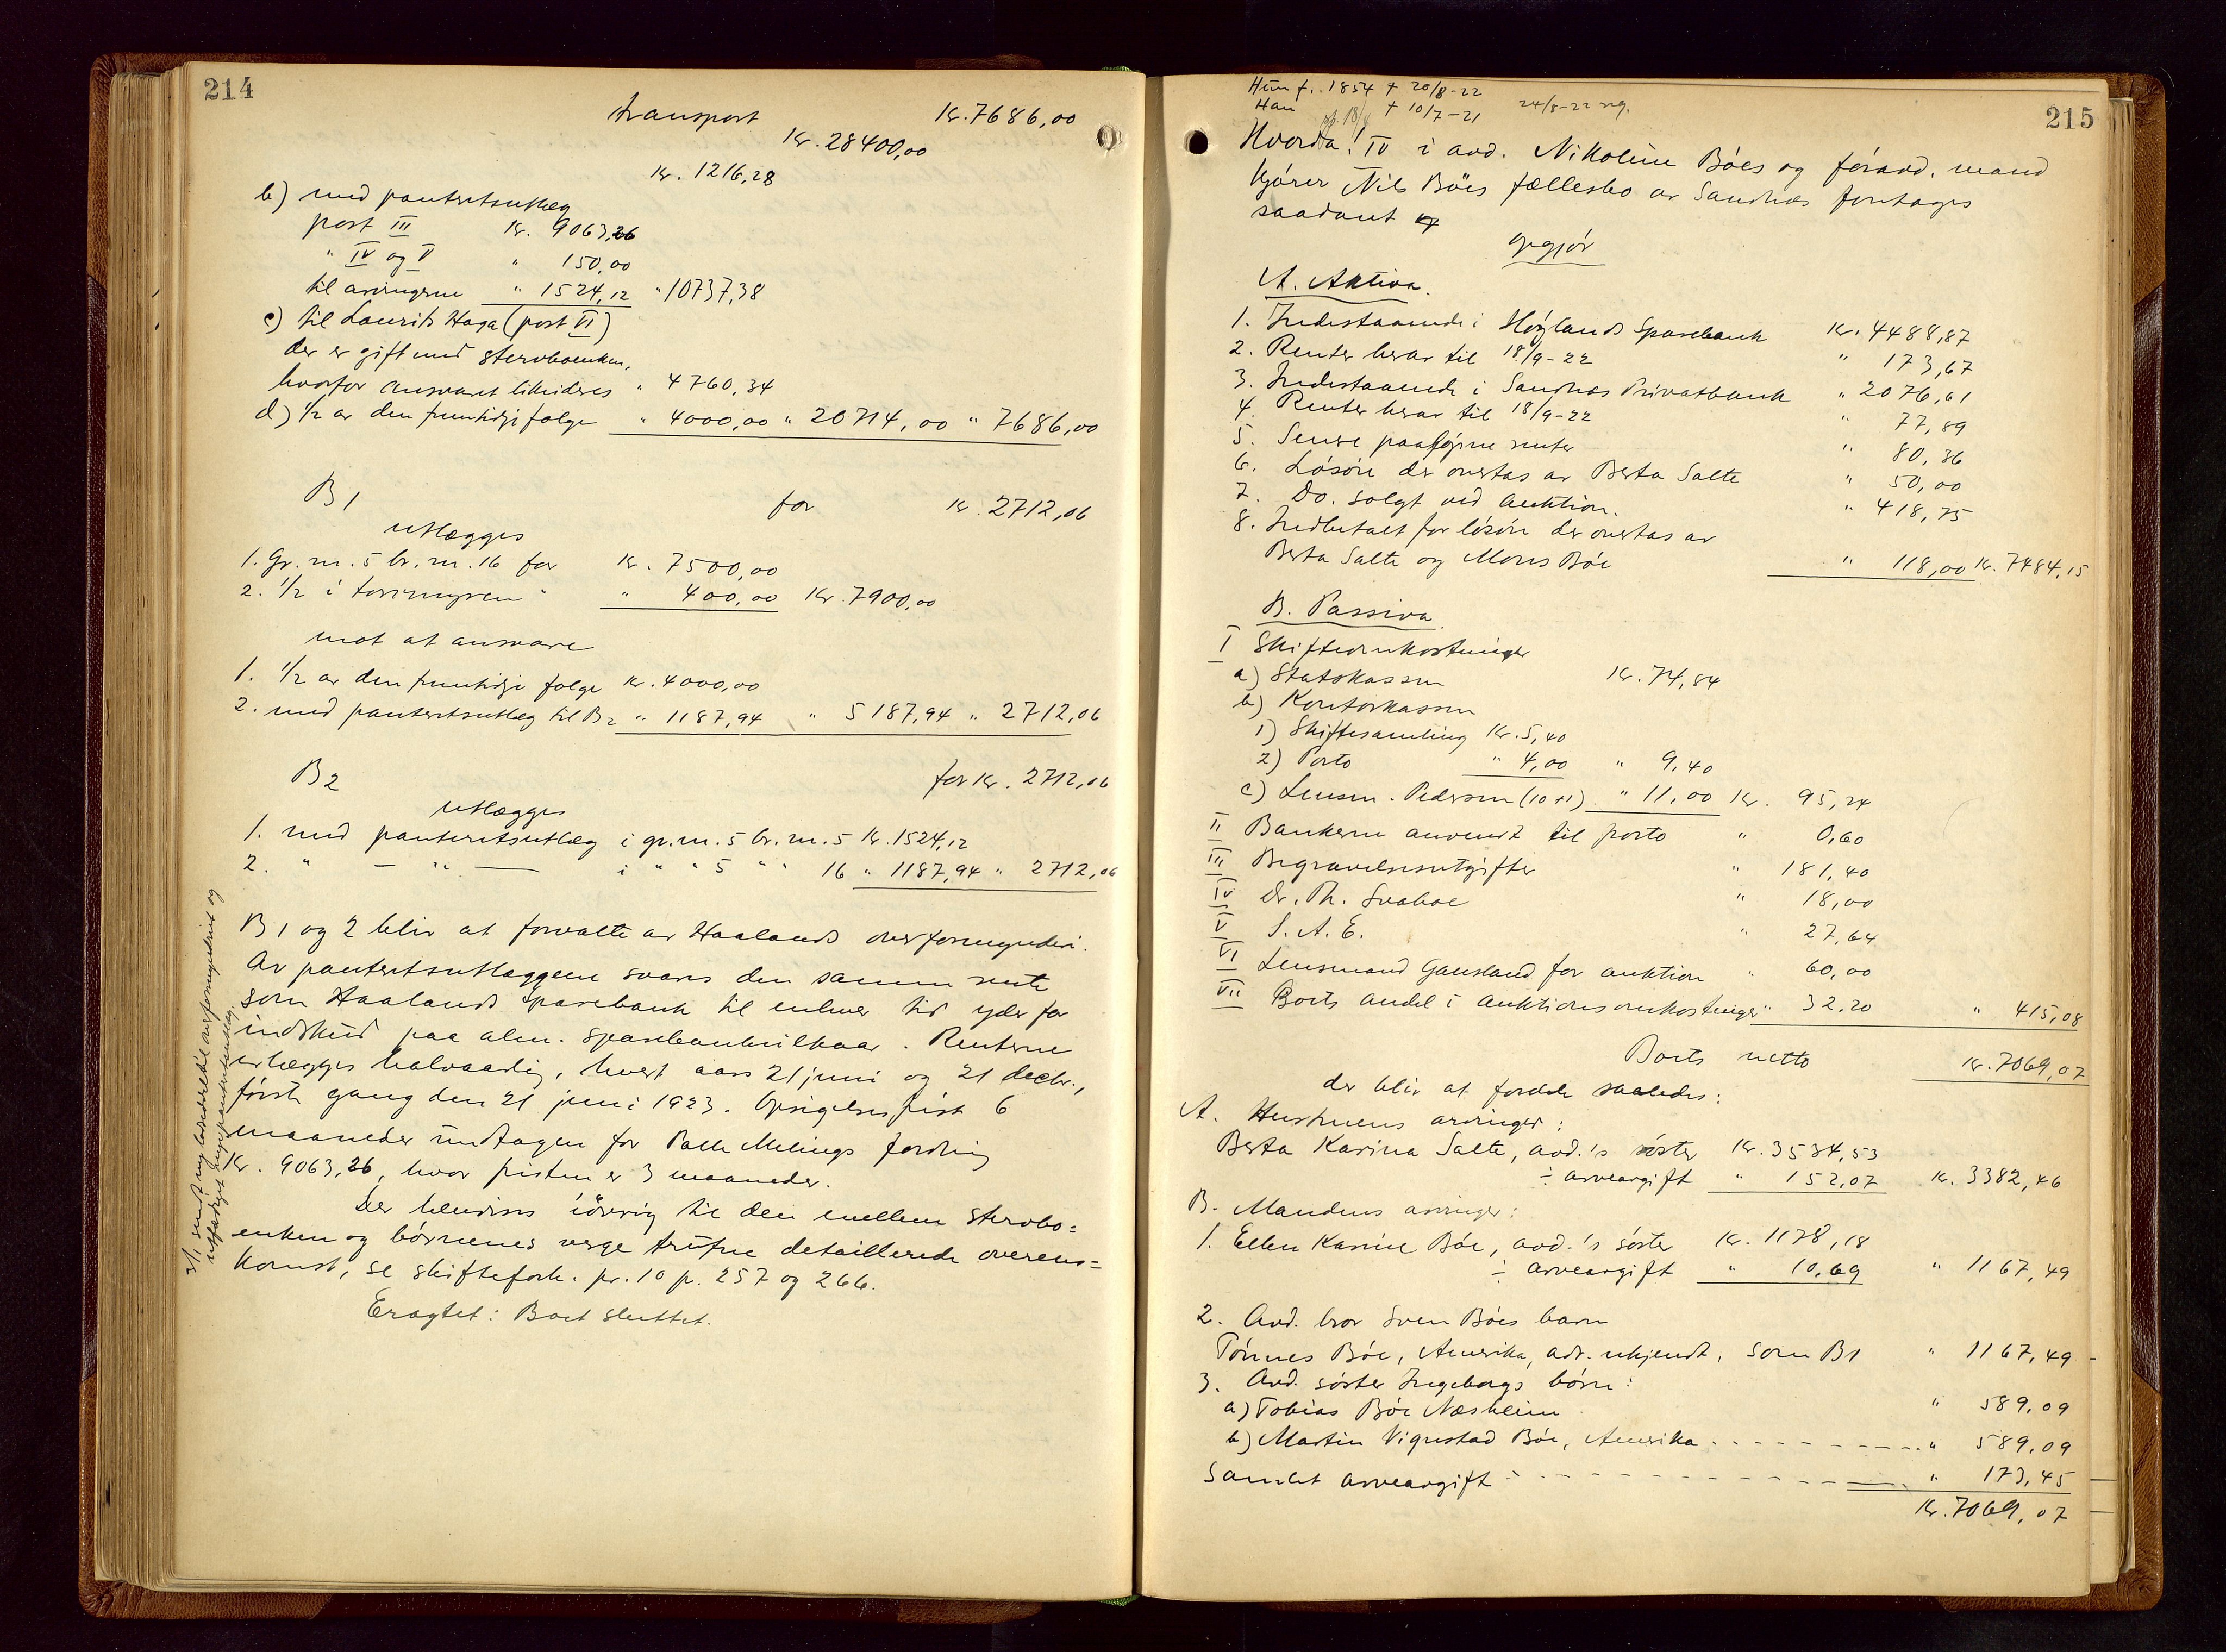 214
transport Kr. 7686,00
Kr. 28400,00
Kr. 1216,28
b) med panteretsutlæg
post III Kr. 9063,26
" IV og V " 150,00
til arvingerne " 1524,12 " 10737,38
c) til Laurits Haga (post VI)
der er gift med sterboenken,
hvorfor ansvaret likvideres " 4760,34
d) 1/2 av den fremtidige følge " 4000,00 " 20714,00 " 7686,00
B1 for Kr. 2712,06
utlægges
1. Gr. nr. 5 br. nr. 16 for Kr. 7500,00
2. 1/2 i torvmyren " " 400,00 Kr. 7900,00
mot at ansvare
1. 1/2 av den fremtidige følge Kr. 4000,00
2. med panteretsutlæg til B2 " 1187,94 " 5187,94 " 2712,06
B2 for Kr. 2712,06
utlægges
1. med panteretsutlæg i gr. nr. 5 br. nr. 5 Kr. 1524,12
2. " — " — i " " 5 " " 16 " 1187,94 " 2712,06
B1 og 2 blir at forvalte av Haalands overformynderi.
Av panteretsutlæggene svares den samme rente
som Haalands Sparebank til enhver tid yder for
indskud paa alm. sparebankvilkaar. Renterne
erlægges halvaarlig, hvert aars 21 juni og 21 decbr.,
første gang den 21 juni 1923. Opsigelsesfrist 6
maaneder undtagen for Palle Melings fordring
Kr. 9063,26, hvor fristen er 3 maaneder.
Der henvises iøvrig til den mellem sterbo=
enken og børnenes verge trufne detaillerede overens=
komst, se skifteforh. pr. 10 p. 257 og 266.
Eragtet: Boet sluttet.
215
Hun f. 1854 + 20/8-22
Han + 10/7-21 24/8-22 reg.
Hvorda! IV i avd. Nikoline Böes og foravd. mand
kjører Nils Böes fællesbo av Sandnes foretages
saadant
opgjør
A. Aktiva.
1. Indestaaende i Høylands Sparebank Kr. 4488,87
2. Renter herav til 18/9-22 " 173,67
3. Indestaaende i Sandnes Privatbank " 2076,61
4. Renter herav til 18/9-22 " 77,89
5. Senere paaløpne renter " 80,36
6. Løsøre der overtas av Berta Salte " 50,00
7. Do. solgt ved auktion. " 418,75
8. Indbetalt for løsøre der overtas av
Berta Salte og Mons Böe " 118,00 Kr. 7484,15
B. Passiva.
I Skifteomkostninger
a) Statskassen Kr. 74,84
b) Kontorkassen
1) Skiftesamling Kr. 5,40
2) Porto " 4,00 " 9,40
c) Lensm. Pedersen (10+1) " 11,00 Kr. 95,24
II Bankerne anvendt til porto " 0,60
III Begravelsesutgifter " 181,40
IV Dr. Th. Svaboe " 18,00
V S. A. E. " 27,64
VI Lensmand Gausland for auktion " 60,00
VII Boets andel i auktionsomkostninger " 32,20 " 415,08
Boets netto Kr. 7069,07
der blir at fordele saaledes:
A. Hustruens arvinger:
Berta Karina Salte, avd.'s søster Kr. 3534,53
÷ arveavgift " 152,07 Kr. 3382,46
B. Mandens arvinger:
1. Ellen Karine Böe, avd.'s søster Kr. 1178,18
÷ arveavgift " 10,69 " 1167,49
2. Avd. bror Sven Böes barn
Tönnes Böe, Amerika, adr. ukjendt, som B1 " 1167,49
3. Avd. søster Ingeborgs børn:
a) Tobias Böe Næsheim " 589,09
b) Martin Vignestad Böe, Amerika " 589,09
Samlet arveavgift " 173,45
Kr. 7069,07